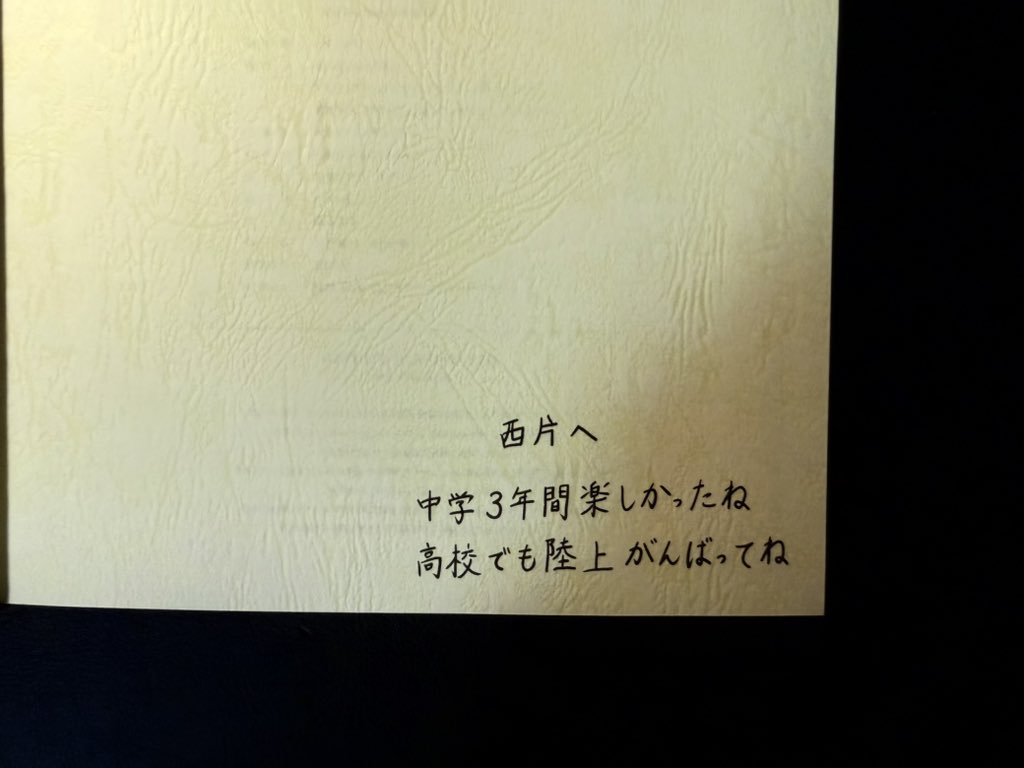 西片へ
中学3年間楽しかったね
高校でも陸上がんばってね